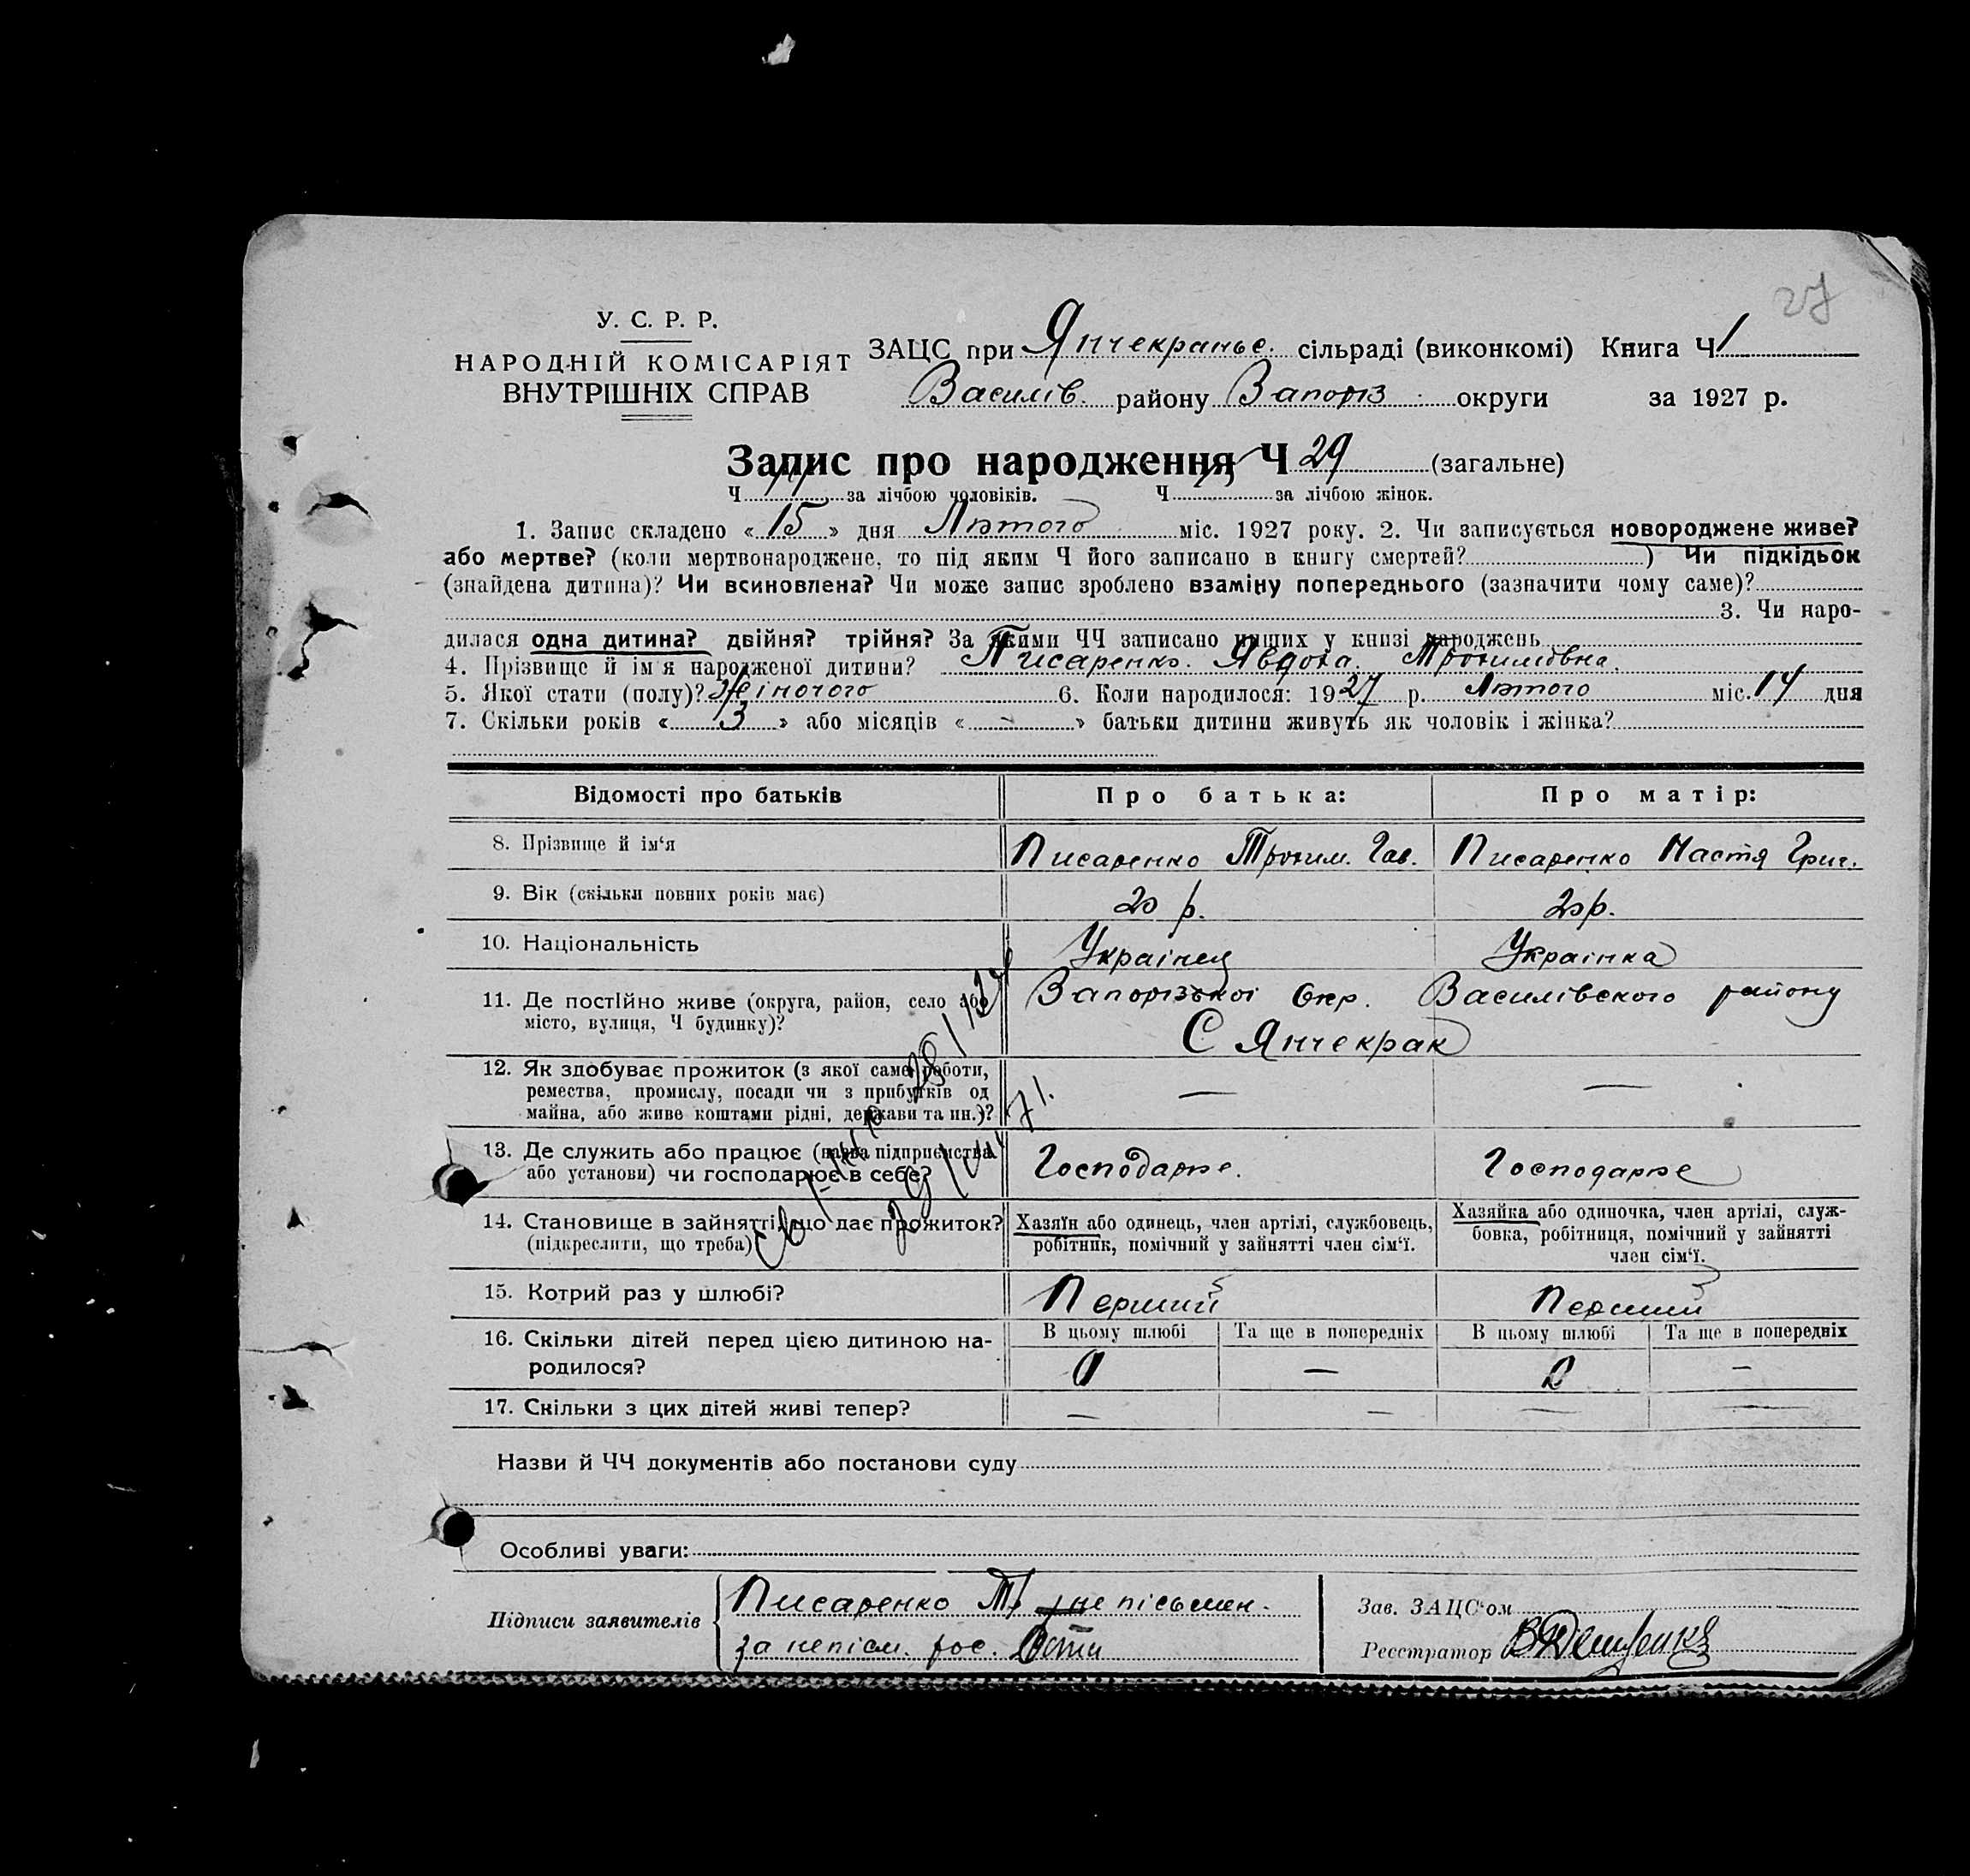 27
У. С. Р. Р.
НАРОДНІЙ КОМІСАРІЯТ
ВНУТРІШНІХ СПРАВ
ЗАЦС при Янчекраньс. сільраді (виконкомі) Книга Ч 1
Василів. району Запоріз. округи за 1927 р.
Запис про народження Ч 29 (загальне)
Ч за лічбою чоловіків. Ч за лічбою жінок.
1. Запис складено « 15 » дня Лютого міс. 1927 року. 2. Чи записується новороджене живе?
або мертве? (коли мертвонароджене, то під яким Ч його записано в книгу смертей? ) Чи підкідьок
(знайдена дитина)? Чи всиновлена? Чи може запис зроблено взаміну попереднього (зазначити чому саме)?
3. Чи наро-
дилася одна дитина? двійня? трійня? За якими ЧЧ записано инших у книзі народжень
4. Прізвище й ім'я народженої дитини? Писаренко. Явдоха. Трохимовна.
5. Якої стати (полу)? Жіночого 6. Коли народилося: 1927 р. Лютого міс. 14 дня
7. Скільки років « 3 » або місяців « - » батьки дитини живуть як чоловік і жінка?
Відомості про батьків Про батька: Про матір:
8. Прізвище й ім'я Писаренко Трохим. Гав. Писаренко Настя Григ.
9. Вік (скільки повних років має) 20 р. 20 р.
10. Національність Украінец Украінка
11. Де постійно живе (округа, район, село або Запорізькоі Окр. Василівского району
місто, вулиця, Ч будинку)? С Янчекрак
12. Як здобуває прожиток (з якої саме роботи, — —
ремества, промислу, посади чи з прибутків од
майна, або живе коштами рідні, держави та ин.)?
13. Де служить або працює (назва підприємства Господарює. Господарює
або установи) чи господарює в себе?
14. Становище в зайнятті, що дає прожиток? Хазяїн або одинець, член артілі, службовець, Хазяйка або одиночка, член артілі, служ-
(підкреслити, що треба) робітник, помічний у зайнятті член сім'ї. бовка, робітниця, помічний у зайнятті
член сім'ї.
15. Котрий раз у шлюбі? Перший Перший
16. Скільки дітей перед цією дитиною на- В цьому шлюбі Та ще в попередніх В цьому шлюбі Та ще в попередніх
родилося? 0 — 0 —
17. Скільки з цих дітей живі тепер? — — — —
Назви й ЧЧ документів або постанови суду
Особливі уваги:
Підписи заявителів Писаренко Т. не пісьмен.
за непісм. рос.
Зав. ЗАЦС'ом
Реєстратор